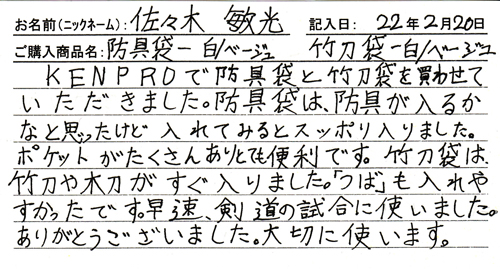 お名前(ニックネーム): 佐々木 敏光 記入日: 22年2月20日
ご購入商品名: 防具袋-白/ベージュ 竹刀袋-白/ベージュ
KENPROで防具袋と竹刀袋を買わせて
いただきました。防具袋は、防具が入るか
なと思ったけど 入れてみるとスッポリ入りました。
ポケットがたくさんありとても便利です。竹刀袋は、
竹刀や木刀がすぐ入りました。「つば」も入れや
すかったです。早速、剣道の試合に使いました。
ありがとうございました。大切に使います。